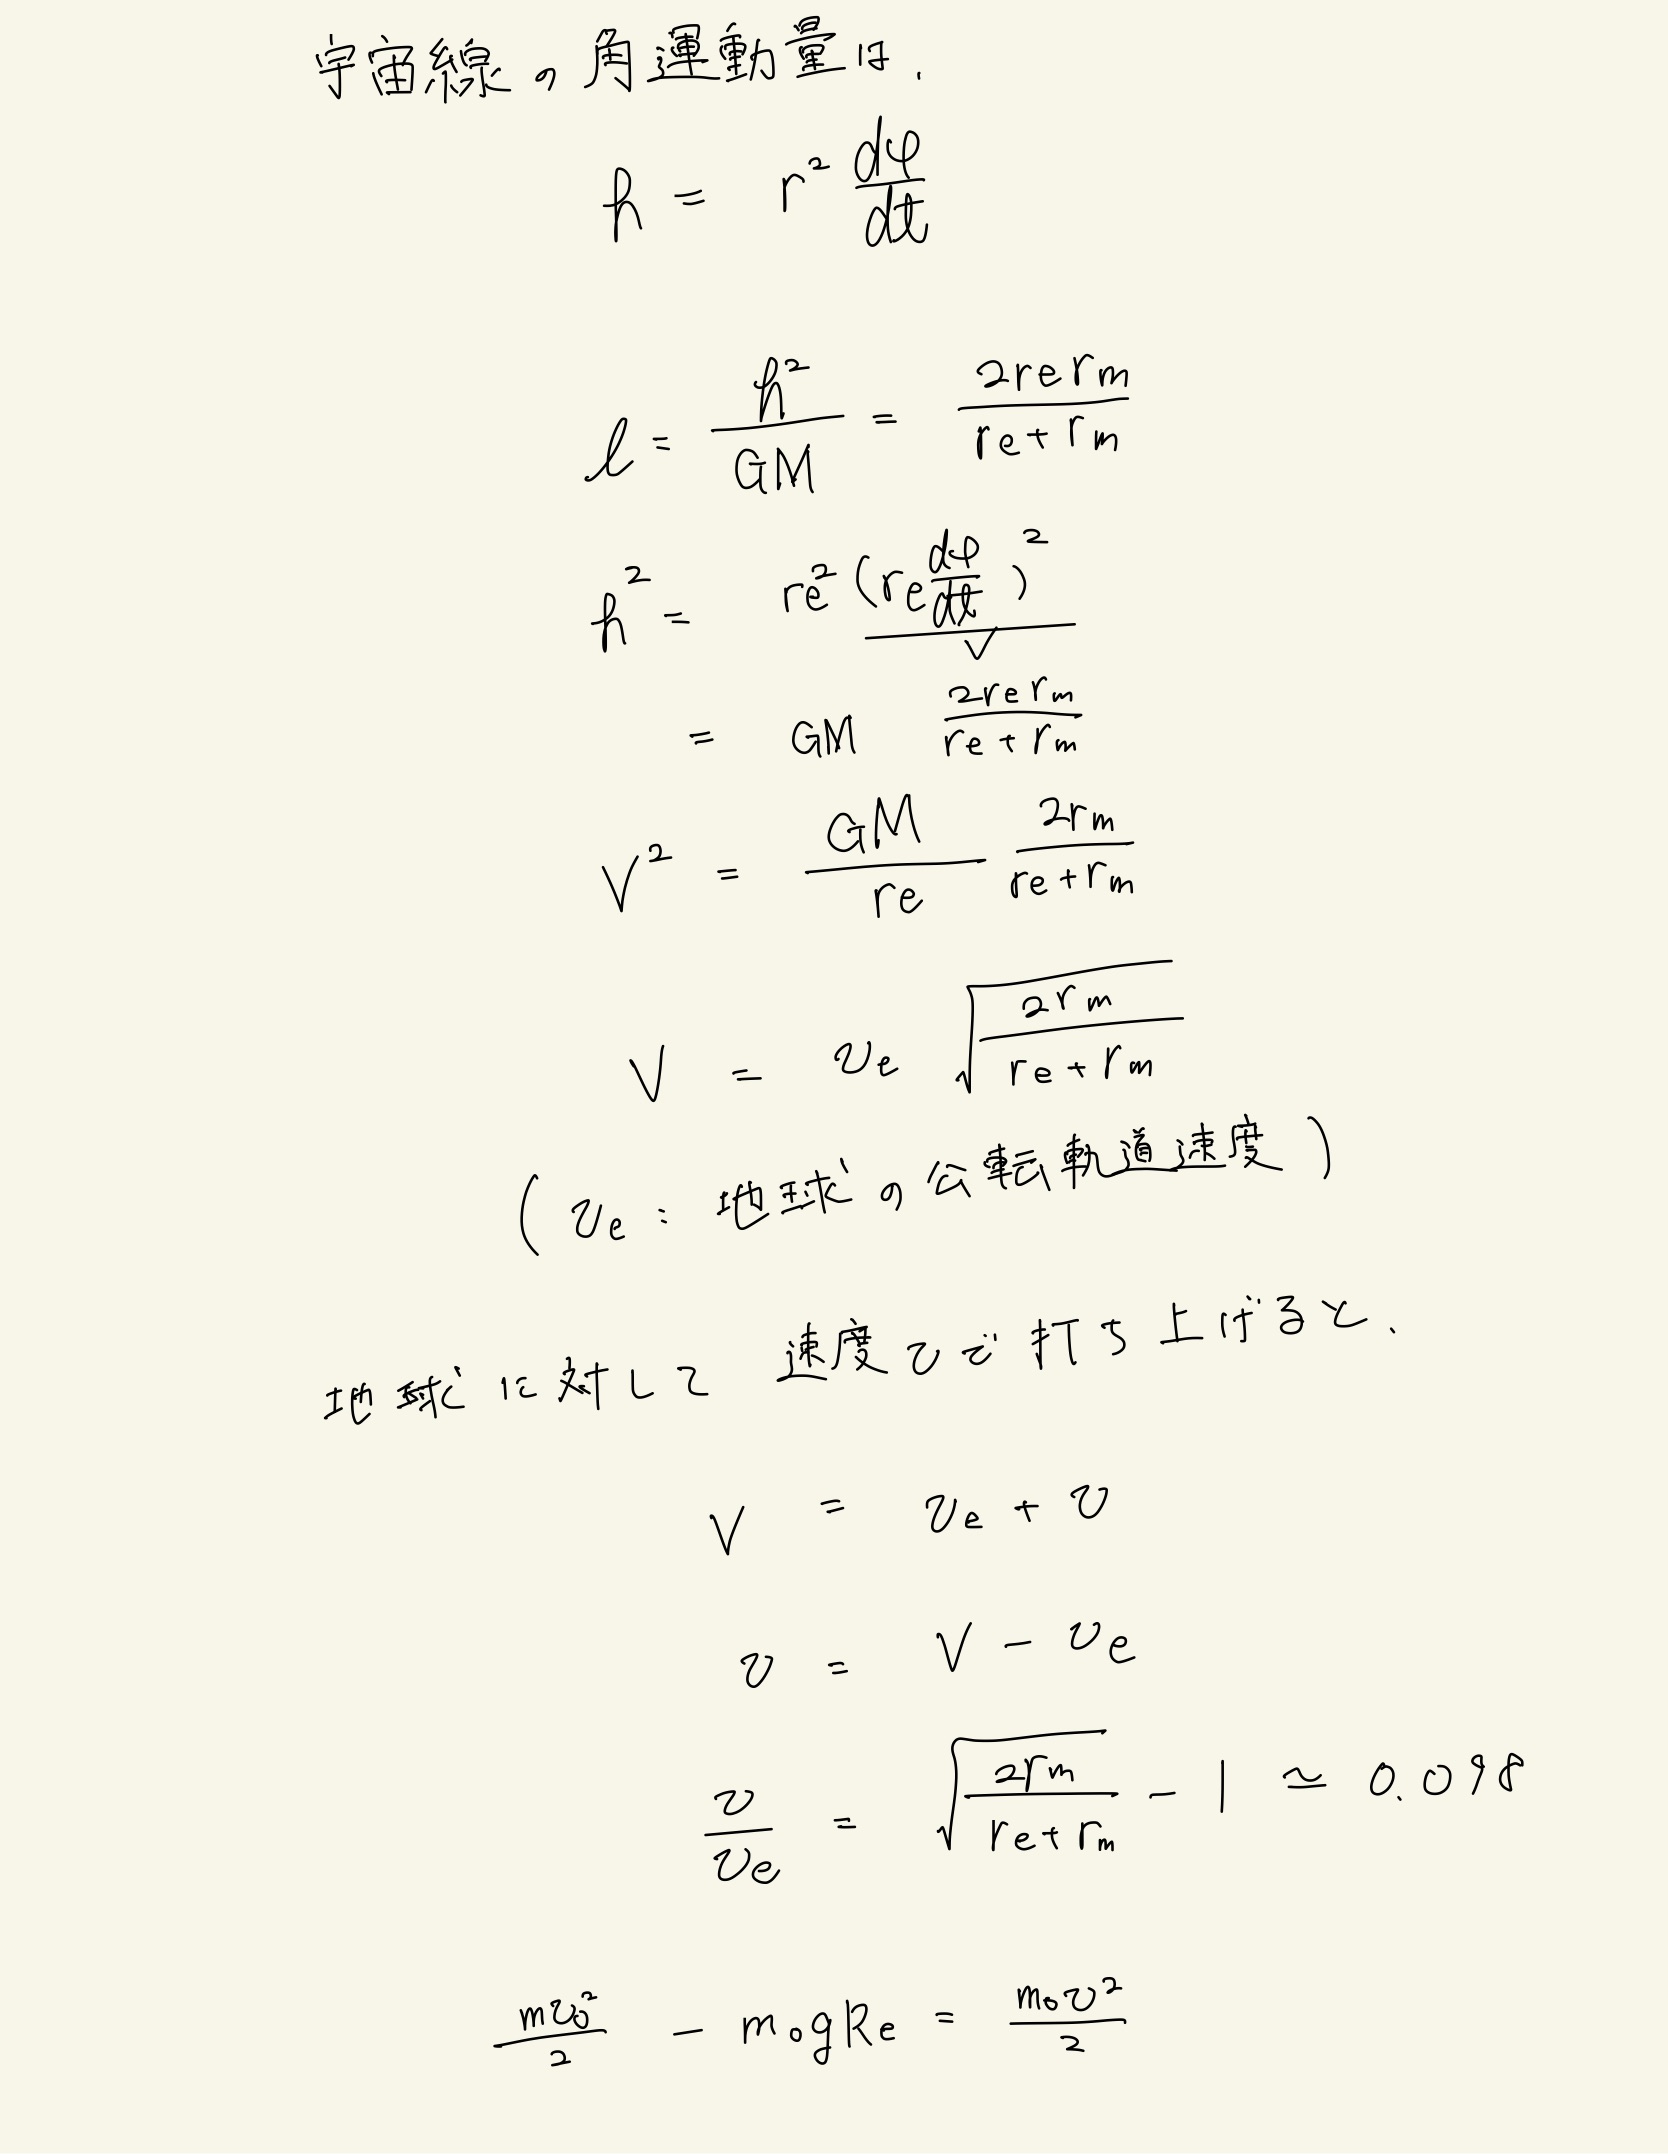 宇宙線の角運動量は,
h = r² dφ/dt
l = h²/GM = 2rerm/re+rm
h² = re²(re dφ/dt)²
V
= GM 2rerm/re+rm
V² = GM/re 2rm/re+rm
V = ve √2rm/re+rm
(ve: 地球の公転軌道速度)
地球に対して 速度vで打ち上げると,
V = ve + v
v = V - ve
v/ve = √2rm/re+rm - 1 ≃ 0.098
mv₀²/2 - m₀gRe = m₀v²/2